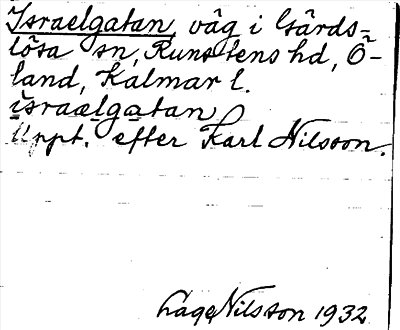 Israelgatan väg i Gärds-
lösa sn, Runstens hd, Ö-
land, Kalmar l.
israelgatan
Uppt. efter Karl Nilsson.
Lage Nilsson 1932